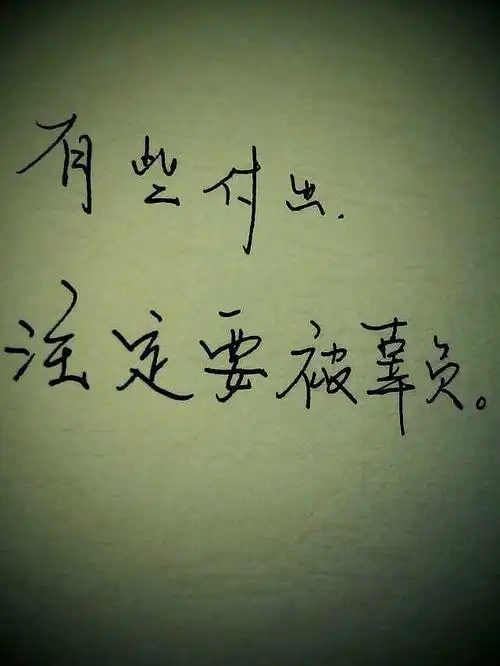 有些付出.
注定要被辜负。